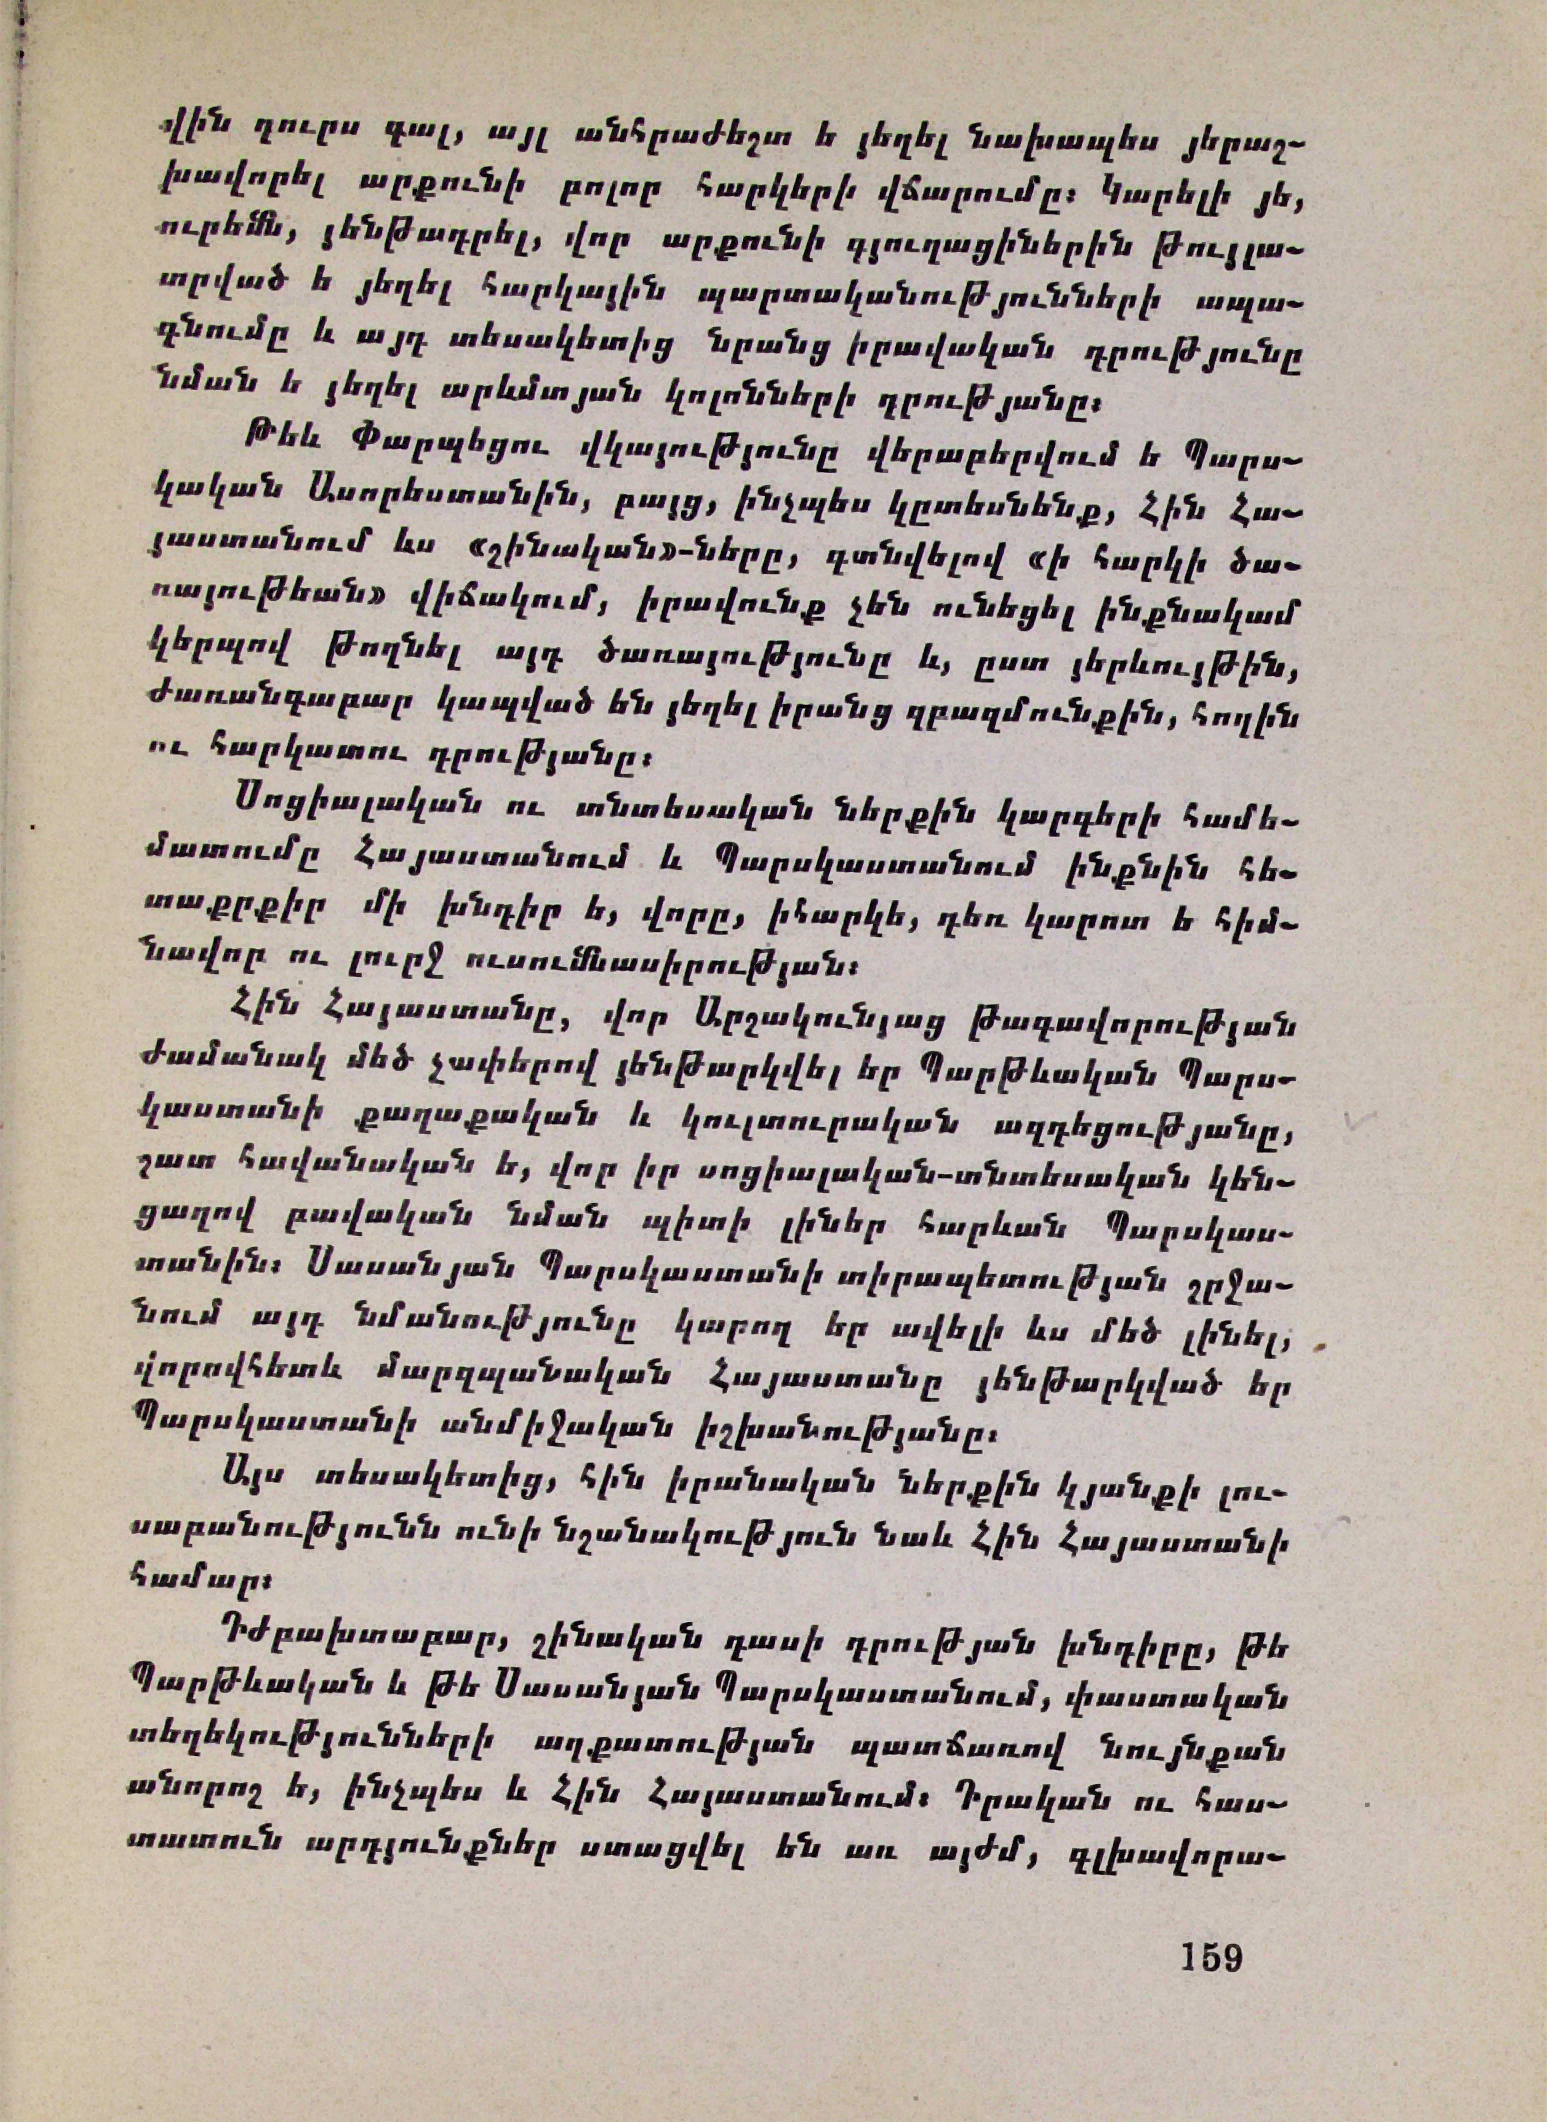 վին դուրս գալ, այլ անհրաժեշտ ե յեղել նախապես յերաշ-
խավորել արքունի բոլոր հարկերի վճարումը։ Կարելի յե,
ուրեմն, յենթադրել, վոր արքունի գյուղացիներին թույլա-
տրված ե յեղել հարկային պարտականությունների ապա-
գնումը և այդ տեսակետից նրանց իրավական դրությունը
նման ե յեղել արևմտյան կոլոնների դրությանը։
Թեև Փարպեցու վկայությունը վերաբերվում ե Պարս-
կական Ասորեստանին, բայց, ինչպես կըտեսնենք, Հին Հա-
յաստանում ևս «շինական»-ները, գտնվելով «ի հարկի ծա-
ռայութեան» վիճակում, իրավունք չեն ունեցել ինքնակամ
կերպով թողնել այդ ծառայությունը և, ըստ յերևույթին,
ժառանգաբար կապված են յեղել իրանց զբազմունքին, հողին
ու հարկատու դրությանը։
Սոցիալական ու տնտեսական ներքին կարգերի համե-
մատումը Հայաստանում և Պարսկաստանում ինքնին հե-
տաքրքիր մի խնդիր ե, վորը, իհարկե, դեռ կարոտ ե հիմ-
նավոր ու լուրջ ուսումնասիրության։
Հին Հայաստանը, վոր Արշակունյաց թագավորության
ժամանակ մեծ չափերով յենթարկվել եր Պարթևական Պարս-
կաստանի քաղաքական և կուլտուրական ազդեցությանը,
շատ հավանական ե, վոր իր սոցիալական-տնտեսական կեն-
ցաղով բավական նման պիտի լիներ հարևան Պարսկաս-
տանին։ Սասանյան Պարսկաստանի տիրապետության շրջա-
նում այդ նմանությունը կարող եր ավելի ևս մեծ լինել,
վորովհետև մարզպանական Հայաստանը յենթարկված եր
Պարսկաստանի անմիջական իշխանությանը։
Այս տեսակետից, հին իրանական ներքին կյանքի լու-
սաբանությունն ունի նշանակություն նաև Հին Հայաստանի
համար։
Դժբախտաբար, շինական դասի դրության խնդիրը, թե
Պարթևական և թե Սասանյան Պարսկաստանում, փաստական
տեղեկությունների աղքատության պատճառով նույնքան
անորոշ ե, ինչպես և Հին Հայաստանում։ Դրական ու հաս-
տատուն արդյունքներ ստացվել են առ այժմ, գլխավորա-
159